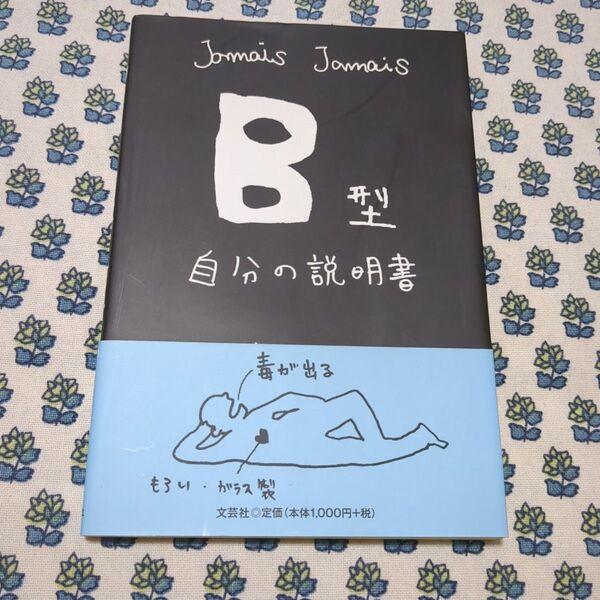 Jamais Jamais
B型
自分の説明書
毒が出る
もろい・ガラス製
文芸社◎定価(本体1,000円+税)